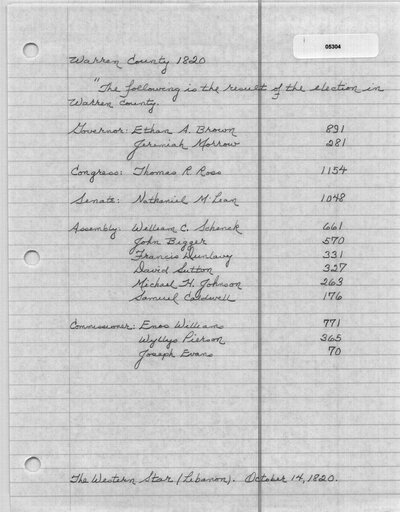 05304
Warren County 1820
"The following is the result of the election in
Warren County.
Governor: Ethan A. Brown 891
Jeremiah Morrow 281
Congress: Thomas R. Ross 1154
Senate: Nathaniel McLean 1048
Assembly: William C. Schenck 661
John Bigger 570
Francis Dunlavy 331
David Sutton 327
Michael H. Johnson 263
Samuel Caldwell 176
Commissioner: Enos Williams 771
Wyllys Pierson 365
Joseph Evans 70
The Western Star (Lebanon). October 14, 1820.